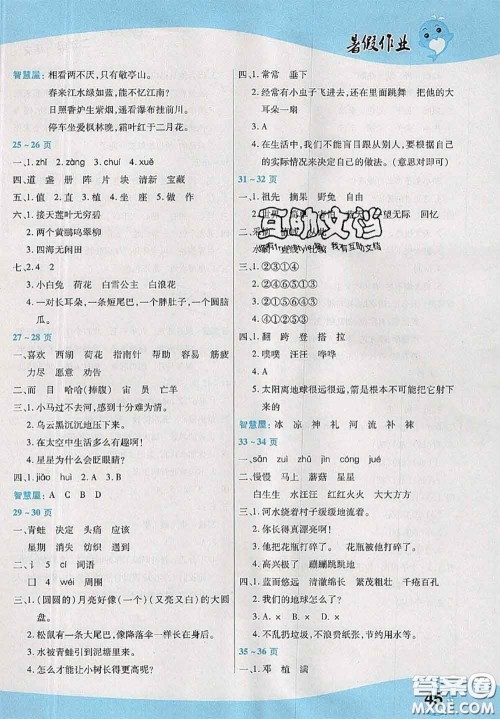 暑假作业
智慧屋:相看两不厌,只有敬亭山。
春来江水绿如蓝,能不忆江南?
日照香炉生紫烟,遥看瀑布挂前川。
停车坐爱枫林晚,霜叶红于二月花。
25－26页
一、1. zhī 2. zàng 3. chuí 4. xuě
四、道 盏 册 阵 片 块 清新 宝藏
五、1. 值 2. 直 3. 植 4. 座 5. 做 作
六、1. 接天莲叶无穷碧
2. 两个黄鹂鸣翠柳
4. 四海无闲田
七、2. 4 2
3. 小白兔 荷花 白雪公主 白龙马
4. 一对长耳朵,一条短尾巴,一个胖肚子,一个圆脑瓜。
27－28页
一、喜欢 西湖 荷花 指南针 帮助 容易 筋疲力尽 愿意 劝告
二、面 目 哈哈(捧腹) 宙 员 亡羊
三、1. 小马过不去河,感到十分难为情。
2. 乌云黑沉沉地压下来。
3. 在太空中生活多么有趣啊!
4. 星星为什么会眨眼睛?
四、1. jiāo huì 2. A
智慧屋:A C B D
29－30页
一、青蛙 决定 头痛 应该
星期 消失 纺织 遇到
二、讠 5 cí 词语
囗 4 wéi 周围
三、1. (圆圆的)月亮好像(一个)(又亮又白)的大圆盘。
2. 松鼠有一条大尾巴,像降落伞一样好看。
3. 因为水被青蛙引到泥塘里来。
4. 怎么才能让小树长得更高呢?
四、1. 常常 垂下
2. 经常有小虫子飞进去,还在里面跳舞 只要把他的大耳朵一扇
3. A
4. 在生活中,我们不能盲目跟从别人,要根据自己的实际情况来决定自己的做法。(意思对即可)
31－32页
一、1. 祖先 摘果 野兔 自由
三、1. ②③①④
2. ④①②⑥③⑤
3. ④①②⑥⑤③
四、1. 跨 奔 登 搭 拉
2. 噗噗 汪汪 哗哗
3. A
五、1. A
2. 太阳离地球很远很远,箭是根本不可能把它射下来的。
智慧屋:冰 凉 神 礼 河 流 补 袜
33－34页
一、1. sǎn zuì zhù jìn cóng jué
二、慢慢 马上 蘑菇 星星
白生生 水汪汪 红彤彤 黄灿灿
三、1. 河水绕着村子缓缓地流着。
2. 你长得真美丽啊!
3. 他把花瓶打碎了。 花瓶被他打碎了。
4. 高兴极了 蹦蹦跳跳地
四、1. 蓝而悠远 清澈湛蓝 繁茂粗壮 千疮百孔
2. 我们的地球怎么会这样?
3. 不乱扔垃圾,不浪费水资源,不乱砍滥伐。
35－36页
一、1. 邓 植 满
45